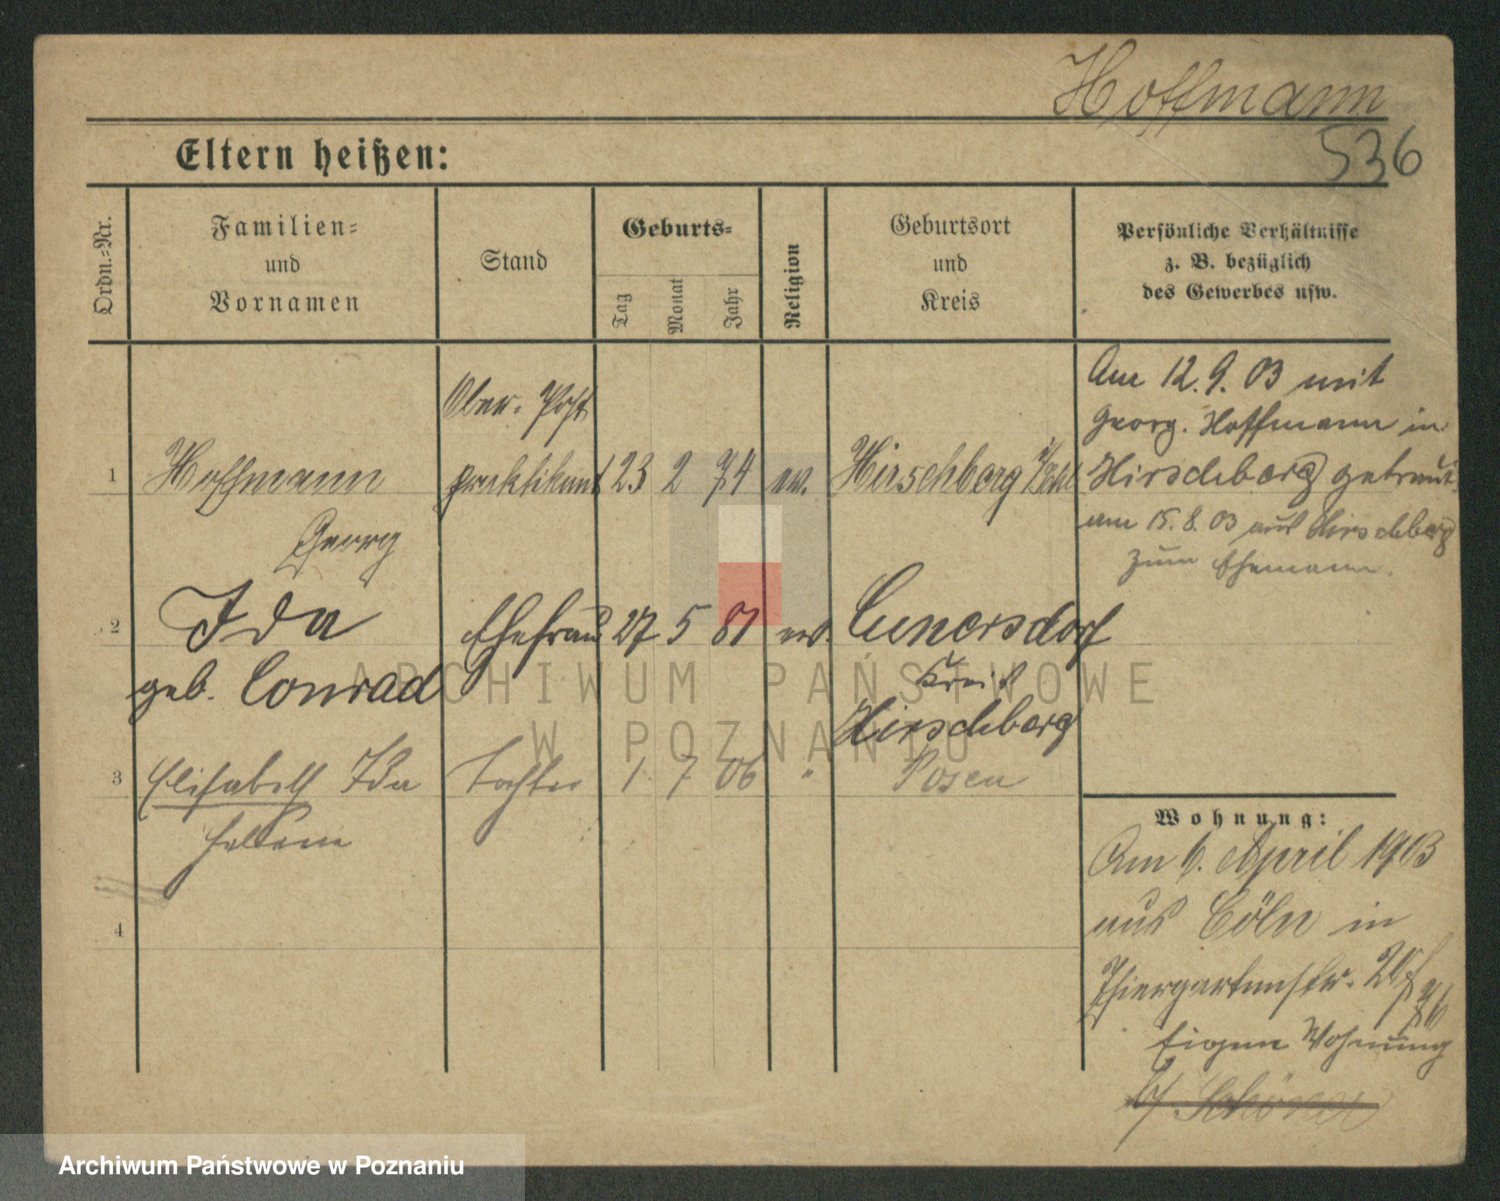 Hoffmann
536
Eltern heißen:
Ordn.-Nr.
Familien-
und
Vornamen
Stand
Geburts-
Tag
Monat
Jahr
Religion
Geburtsort
und
Kreis
Persönliche Verhältnisse
z. B. bezüglich
des Gewerbes usw.
Ober-Post
1 Hoffmann praktikant 23 2 74 ev. Hirschberg i/Schl
Georg
2 Ida Ehefrau 27 5 81 ev. Cunersdorf
geb. Conrad Kreis
Hirschberg
3 Elisabeth Ida Tochter 1 7 06 " Posen
Helene
4
Am 12.9.03 mit
Georg. Hoffmann in
Hirschberg getraut
am 15.8.03 aus Hirschberg
zum Ehemann.
Wohnung:
Am 6. April 1903
aus Cöln in
Thiergartenstr.
Eigene Wohnung
b/
ARCHIWUM PAŃSTWOWE
W POZNANIU
Archiwum Państwowe w Poznaniu